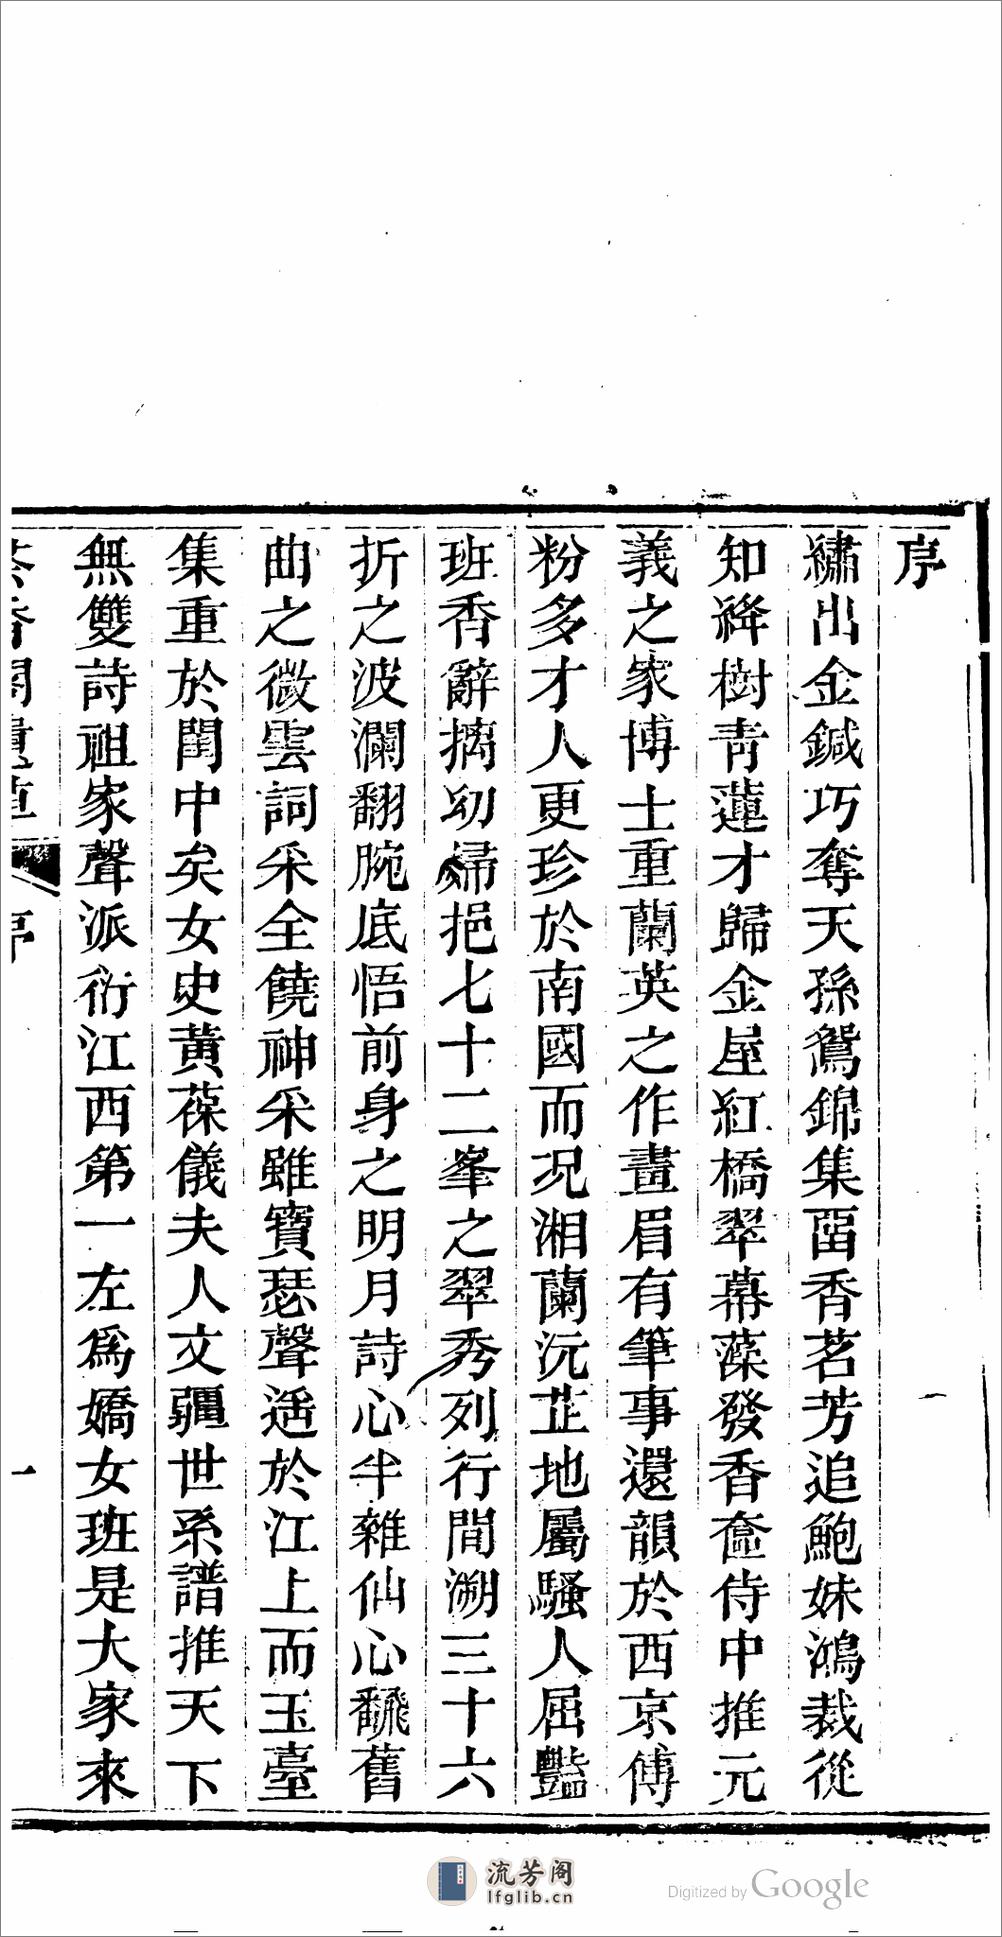 序
繡出金鍼巧奪天孫鴛錦集畱香茗芳追鮑妹鴻裁從
知絳樹靑蓮才歸金屋紅橋翠幕藻發香奩侍中推元
義之家博士重蘭英之作畫眉有筆事還韻於西京傅
粉多才人更珍於南國而况湘蘭沅芷地屬騷人屈豔
班香辭摛幼婦挹七十二峯之翠秀列行間溯三十六
折之波瀾翻腕底悟前身之明月詩心半雜仙心飜舊
曲之微雲詞采全饒神采雖寶瑟聲遥於江上而玉臺
集重於閨中矣女史黃葆儀夫人文疆世系譜推天下
無雙詩祖家聲派衍江西第一左爲嬌女班是大家來
茶香閣遺草
序
一
流芳阁
lfglib.cn
Digitized by Google